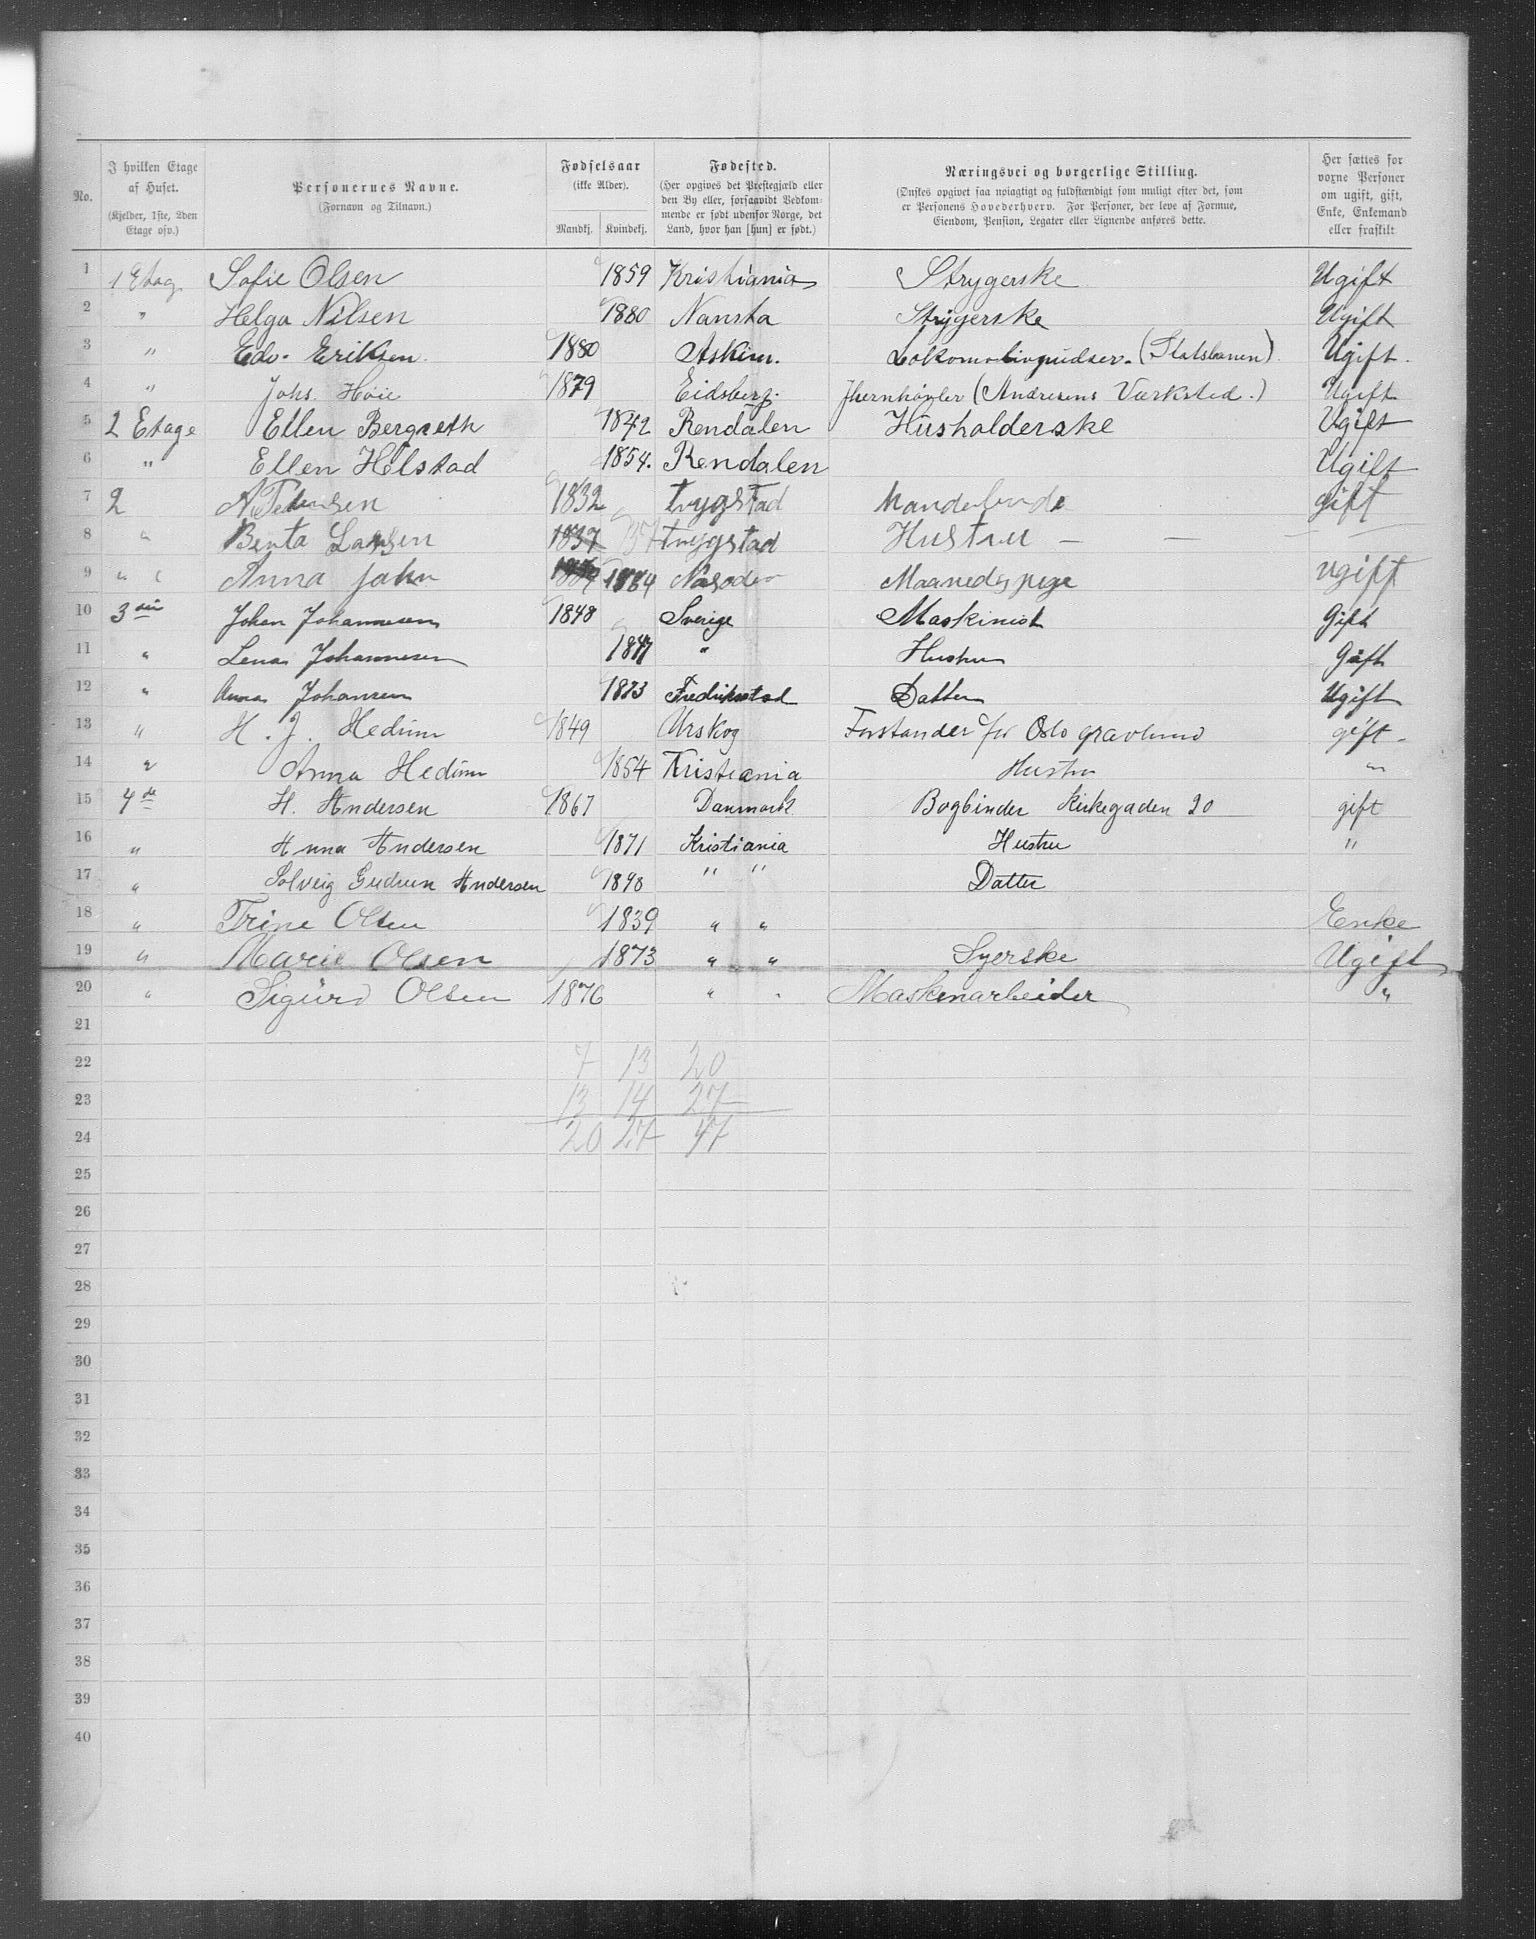 No.
I hvilken Etage af Huset.
(Kjelder, 1ste, 2den Etage osv.)
Personernes Navne.
(Fornavn og Tilnavn.)
Fødselsaar
(ikke Alder).
Mandkj. Kvindekj.
Fødested.
(Her opgives det Prestegjæld eller den By eller, forsaavidt Vedkommende er født udenfor Norge, det Land, hvor han [hun] er født.)
Næringsvei og borgerlige Stilling.
(Ønskes opgivet saa nøiagtigt og fuldstændigt som muligt efter det, som er Personens Hovederhverv. For Personer, der leve af Formue, Eiendom, Pension, Legater eller Lignende anføres dette.
Her sættes for voxne Personer om ugift, gift, Enke, Enkemand eller fraskilt
1 1 Etag. Sofie Olsen 1859 Kristiania Strygerske Ugift
2 " Helga Nilsen 1880 Strygerske Ugift
3 " Edv. Eriksen 1880 Askim. Lokomotivpudser. (Statsbanen) Ugift.
4 " Johs. Høie 1879 Eidsberg. Jhernhøvler (Andresens Værksted.) Ugift
5 2 Etage Ellen 1842 Rendalen Husholderske Ugift
6 " Ellen Holstad 1854. Rendalen Ugift
7 2 1832 trygstad gift
8 " Benta Larsen 1837 trygstad Hustru — — —
9 " " Anna Jahn 1884 ugift
10 3 die Johan Johannesen 1848 Sverige Maskinist Gift
11 " Lena Johannesen " Hustru Gift
12 " Anna Johansen 1873 Fredrikstad Datter Ugift
13 " H. J. Hedum 1849 Urskog Forstander for Oslo gravlund gift -
14 " Anna Hedum 1854 Kristiania Hustru "
15 4 de H. Andersen 1867 Danmark Bogbinder Kirkegaden 20 gift
16 " Anna Andersen 1871 Kristiania Hustru "
17 " Solveig Gudrun Andersen 1898 " " Datter
18 " Trine Olsen 1839 " " Enke
19 " Marie Olsen 1873 " " Syerske Ugift
20 " Sigurd Olsen 1876 " " Maskinarbeider "
21
22 7 13 20
23 13 14 27
24 20 27 47
25
26
27
28
29
30
31
32
33
34
35
36
37
38
39
40